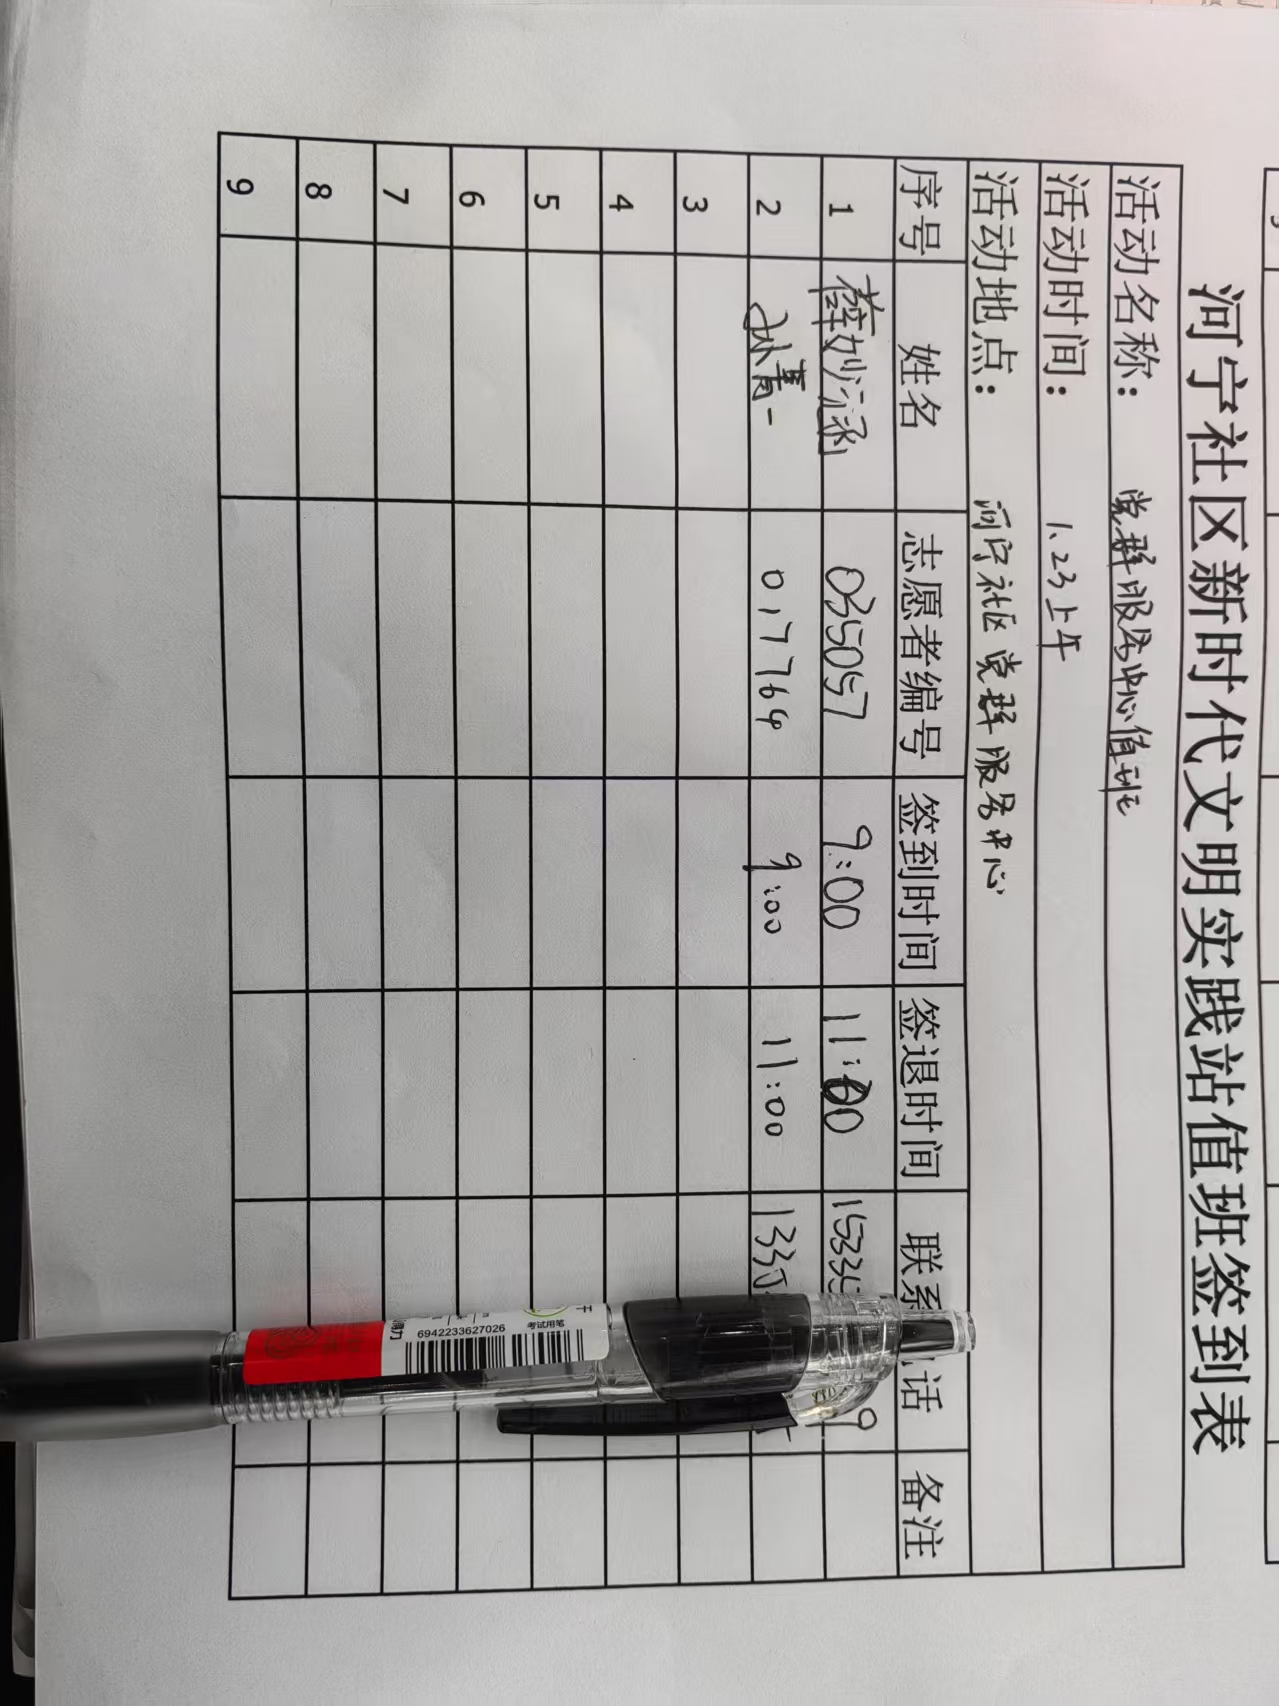 河宁社区新时代文明实践站值班签到表
活动名称： 党群服务中心值班
活动时间： 1.23上午
活动地点： 河宁社区党群服务中心
序号 姓名 志愿者编号 签到时间 签退时间 联系 话 备注
1 薛妙涵 035057 9:00 11:00 1533 9
2 孙青一 017764 9:00 11:00 133
3
4
5
6
7
8
9
考试用笔
6942233627026